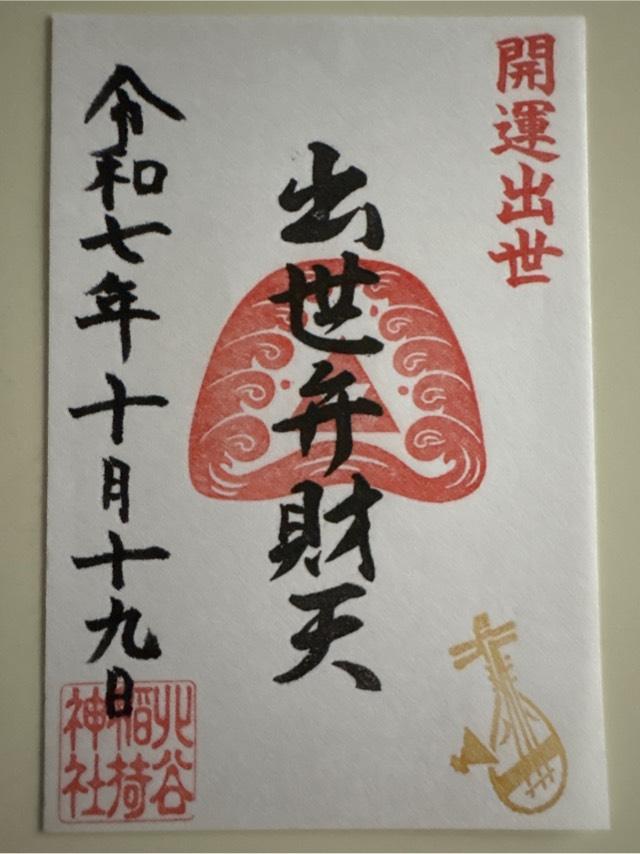 開運出世
出世弁財天
令和七年十月十九日
北谷
稲荷
神社